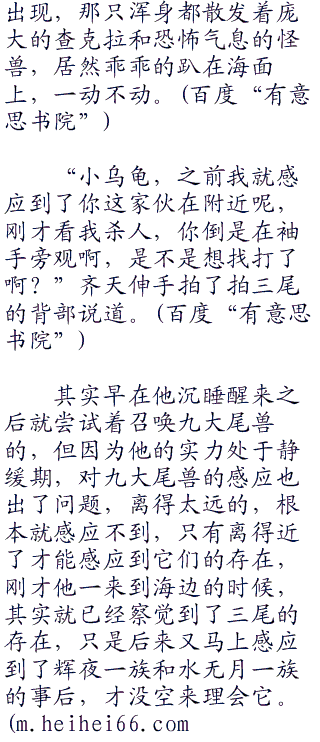 出现，那只浑身都散发着庞
大的查克拉和恐怖气息的怪
兽，居然乖乖的趴在海面
上，一动不动。(百度“有意
思书院”)
“小乌龟，之前我就感
应到了你这家伙在附近呢，
刚才看我杀人，你倒是在袖
手旁观啊，是不是想找打了
啊？”齐天伸手拍了拍三尾
的背部说道。(百度“有意思
书院”)
其实早在他沉睡醒来之
后就尝试着召唤九大尾兽
的，但因为他的实力处于静
缓期，对九大尾兽的感应也
出了问题，离得太远的，根
本就感应不到，只有离得近
了才能感应到它们的存在，
刚才他一来到海边的时候，
其实就已经察觉到了三尾的
存在，只是后来又马上感应
到了辉夜一族和水无月一族
的事后，才没空来理会它。
(m.heihei66.com